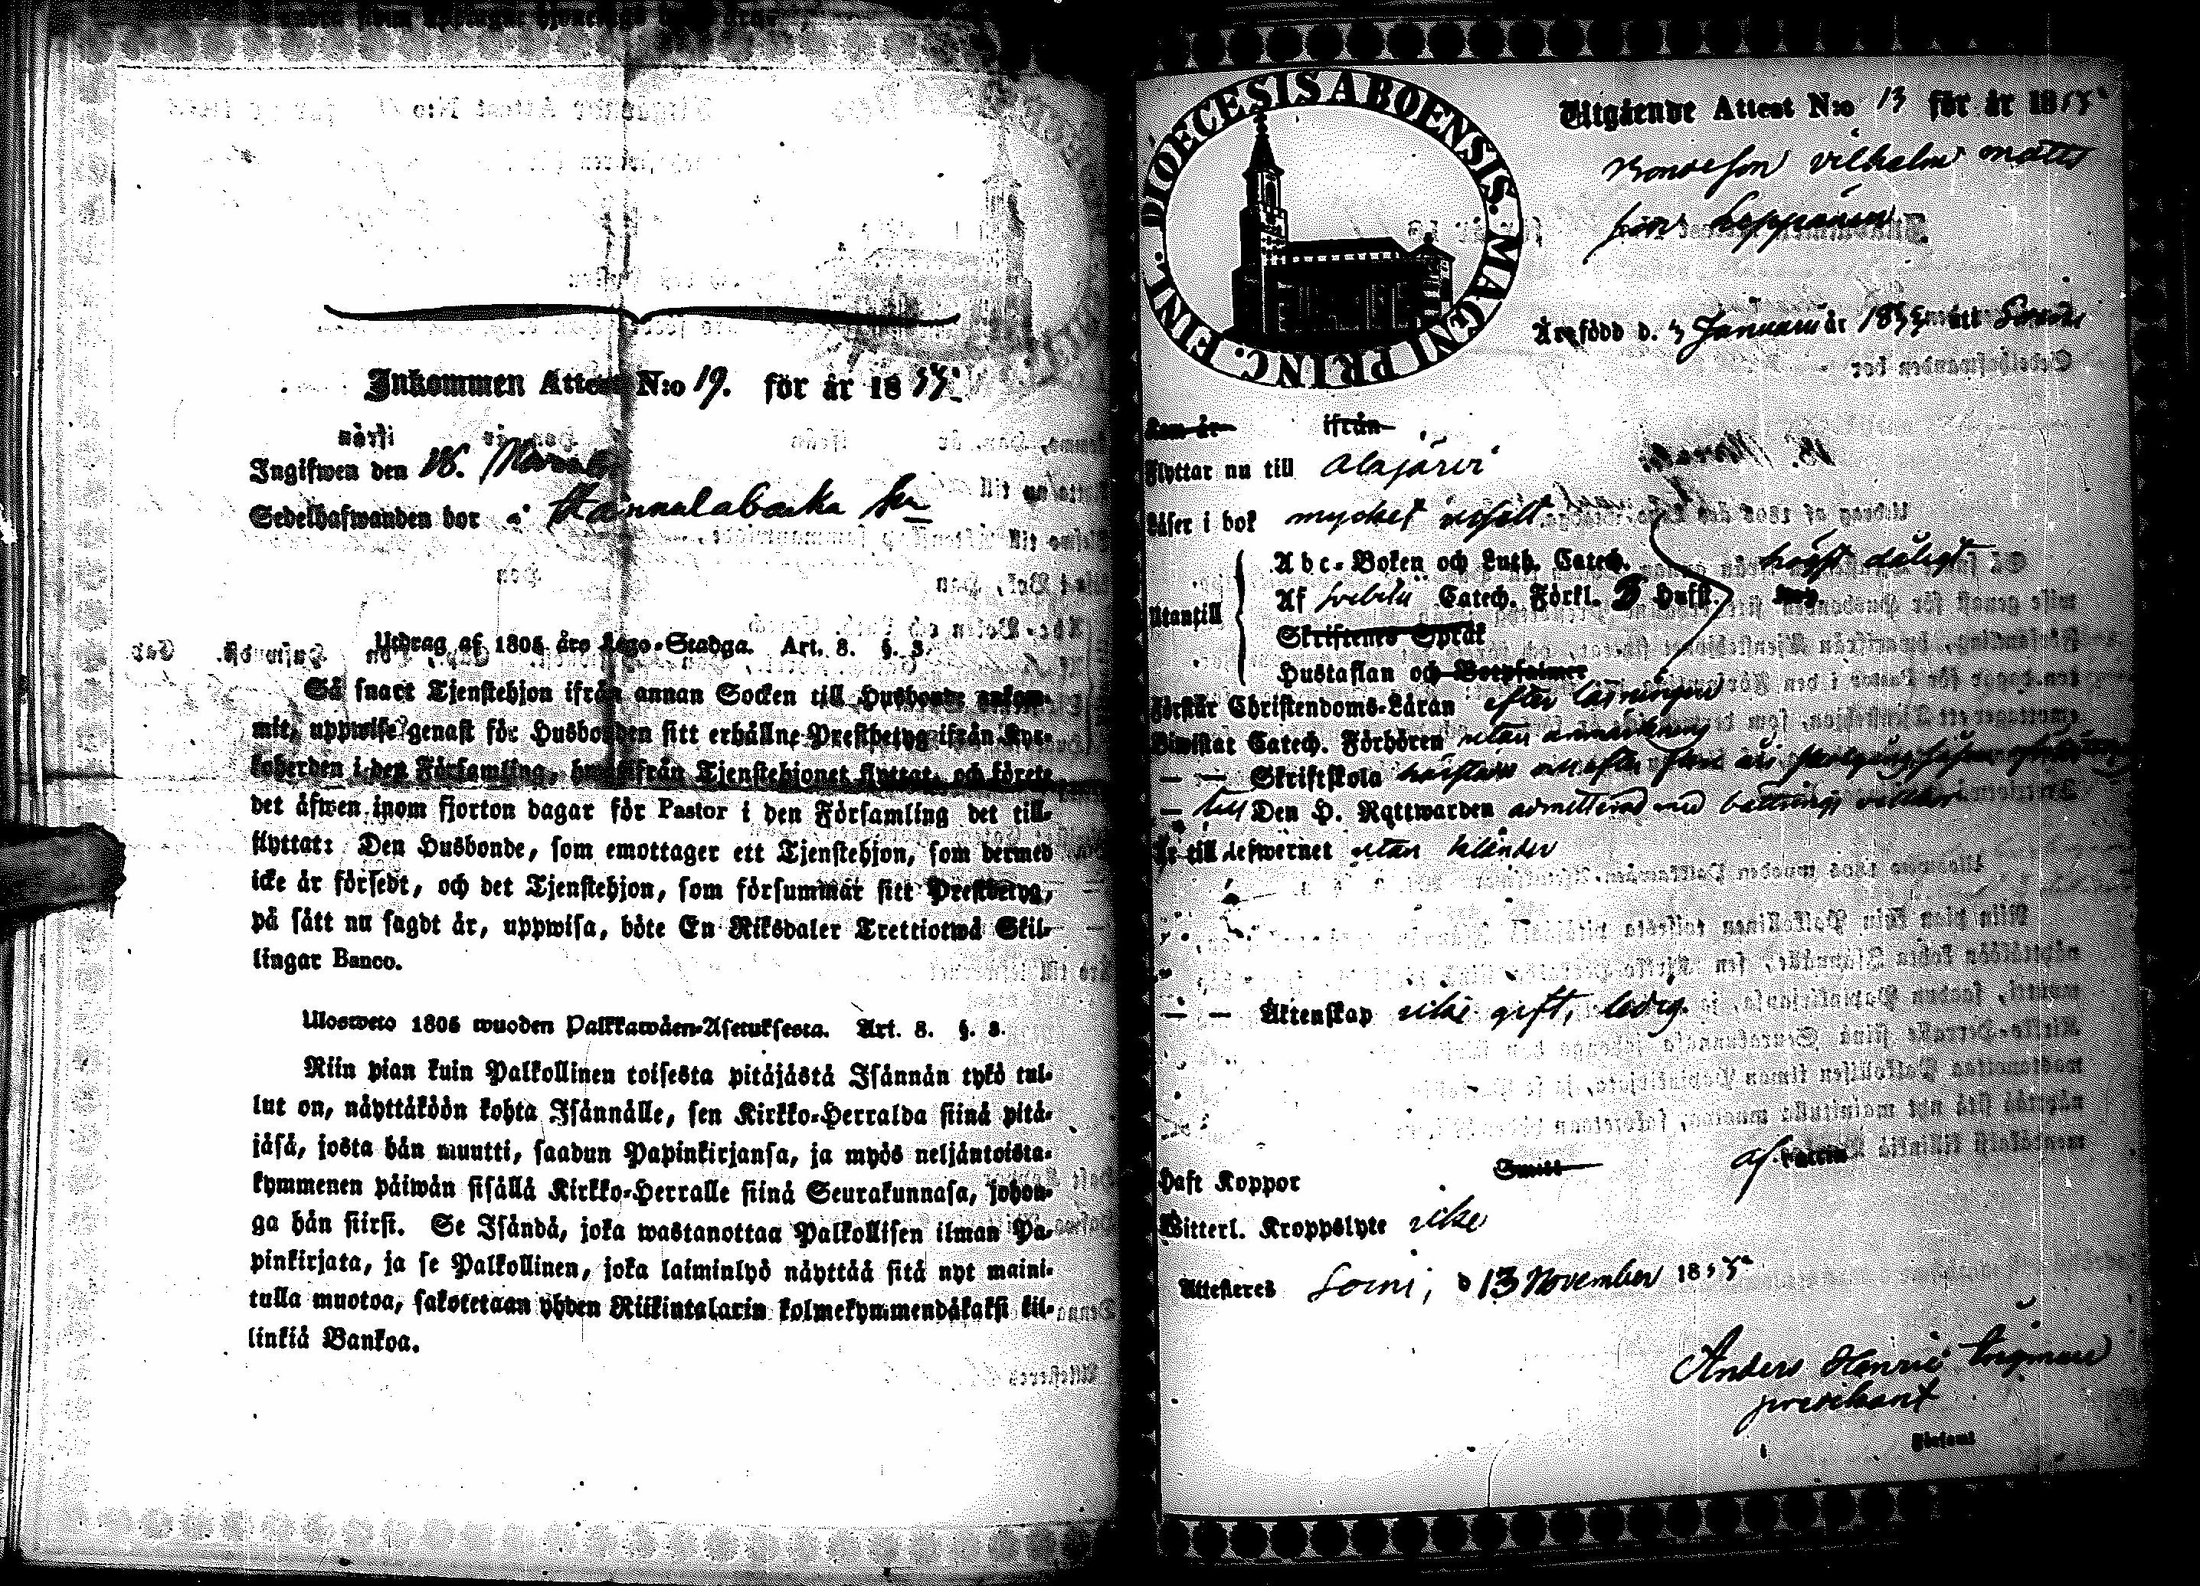 Inkommen Attest N:o 19. för år 18
Ingifwen den 18.
Sedelhafwanden bor i
Utdrag af 1805 års Lego-Stadga. Art. 8. §. 3.
Så snart Tjenstehjon ifrån annan Socken till Husbonde ankom-
mit, uppwise genast för Husbonden sitt erhållne Prestbetyg ifrån Kyr-
koherden i den Församling, hwarifrån Tjenstehjonet flyttat, och förete
det äfwen inom fjorton dagar för Pastor i den Församling det till-
flyttat: Den Husbonde, som emottager ett Tjenstehjon, som dermed
icke är försedt, och det Tjenstehjon, som försummar sitt Prestbetyg,
på sätt nu sagdt är, uppwisa, böte En Riksdaler Trettiotwå Skil-
lingar Banco.
Ulosweto 1805 wuoden Palkkawäen-Asetuksesta. Art. 8. §. 3.
Niin pian kuin Palkollinen toisesta pitäjästä Isännän tykö tul-
lut on, näyttäköön kohta Isännälle, sen Kirkko-Herralda siinä pitä-
jäsä, josta hän muutti, saadun Papinkirjansa, ja myös neljäntoista-
kymmenen päiwän sisällä Kirkko-Herralle siinä Seurakunnasa, johon-
ga hän siirsi. Se Isändä, joka wastanottaa Palkollisen ilman Pa-
pinkirjata, ja se Palkollinen, joka laiminlyö näyttää sitä nyt maini-
tulla muotoa, sakotetaan yhden Riikintalarin kolmekymmendäkaksi kil-
linkiä Bankoa.
DIOECESIS ABOENSIS. MAGNI PRINC. FINL.
Utgående Attest N:o 13 för år 18
Bondeson Vilhelm Matts
son Leppänen
Är född d. 3 Januari år 18 att Soini
Kom år ifrån
Flyttar nu till Alajärvi
Läser i bok mycket
Utantill
Abc-Boken och Luth. Catech.
högst dåligt
Af Svebilii Catech. Förkl. 3 Hufst.
Skriftenes Språk
Hustaflan och Botpsalmer
Förstår Christendoms-Läran efter läsningen
Biwistat Catech. Förhören utan anmärkning
— — Skriftskola
— till Den H. Nattwarden admitterad med bättrings vilkor
Är till lefwernet utan
— — Äktenskap icke gift, ledig.
Haft Koppor Smitt af Vaccin
Witterl. Kroppslyte icke
Attesteres Soini, d 13 November 18
Anders Henric
predikant